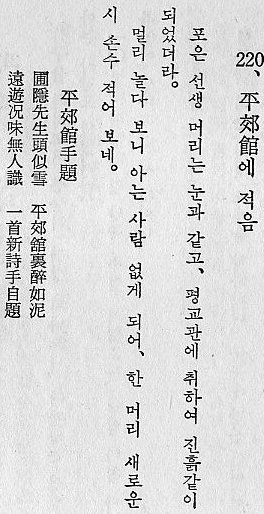 220、平郊館에 적음
포은 선생 머리는 눈과 같고、평교관에 취하여 진흙같이
되었더라。
멀리 놀다 보니 아는 사람 없게 되어、한 머리 새로운
시 손수 적어 보네。
平郊館手題
圃隱先生頭似雪　平郊舘裏醉如泥
遠遊況味無人識　一首新詩手自題